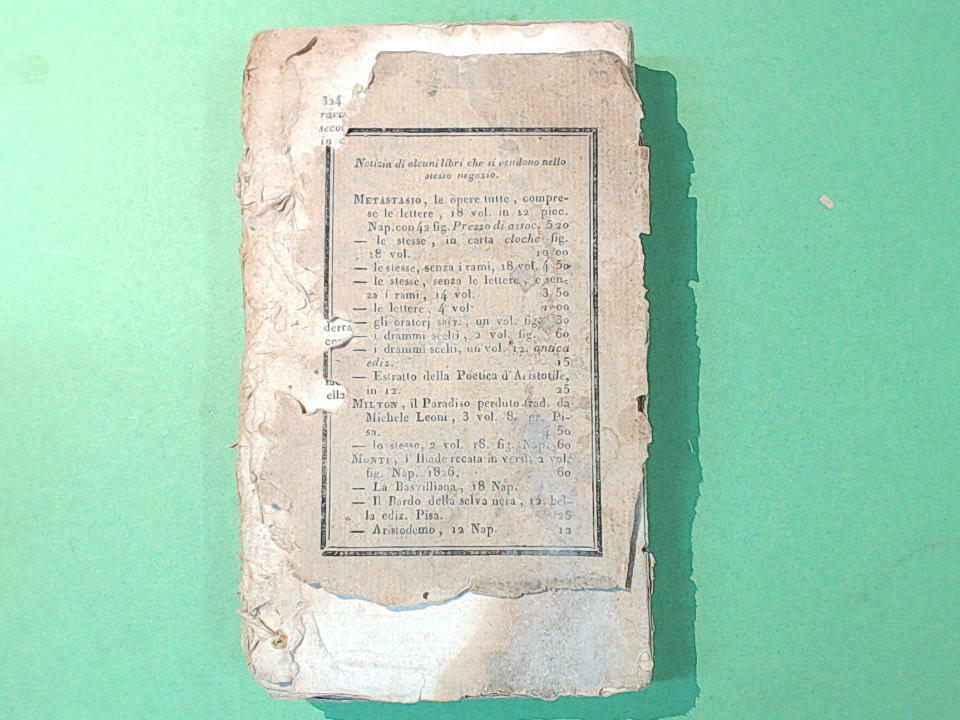 324
rav
secol
in c
Notizia di alcuni libri che si vendono nello
stesso negozio.
METASTASIO, le opere tutte, compre-
se le lettere, 18 vol. in 12 picc.
Nap. con 42 fig. Prezzo di assoc. 5 20
— le stesse, in carta cloché fig.
18 vol. 10 00
— le stesse, senza i rami, 18 vol. 4 50
— le stesse, senza le lettere, e sen-
za i rami, 14 vol. 3 50
— le lettere, 4 vol. 1 00
— gli oratorj sacr., un vol. fig. 30
— i drammi scelti, 2 vol. fig. 60
— i drammi scelti, un vol. 12. antica
ediz. 15
— Estratto della Poetica d'Aristotile,
in 12. 25
MILTON, il Paradiso perduto trad. da
Michele Leoni, 3 vol. 8. gr. Pi-
sa. 4 50
— lo stesso, 2 vol. 18. fig. Nap. 60
MONTI, l'Iliade recata in versi, 2 vol.
fig. Nap. 1826. 60
— La Basvilliana, 18 Nap.
— Il Bardo della selva nera, 12. bel-
la ediz. Pisa. 25
— Aristodemo, 12 Nap. 12
derra
ella